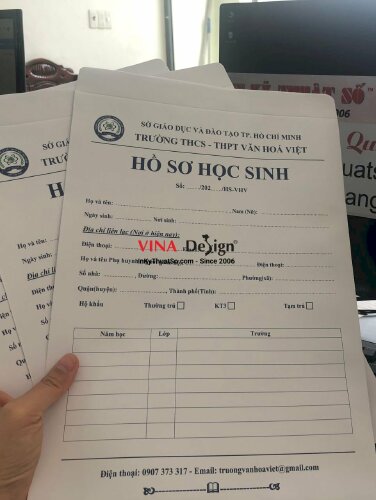 SỞ GIÁO DỤC VÀ ĐÀO TẠO TP. HỒ CHÍ MINH
TRƯỜNG THCS - THPT VĂN HOÁ VIỆT
HỒ SƠ HỌC SINH
Số: ....../202...../HS-VHV
Họ và tên: Nam (Nữ):
Ngày sinh: Nơi sinh:
Địa chỉ liên lạc (Nơi ở hiện nay):
Điện thoại:
VINA Design
Họ và tên Phụ huynh Điện thoại:
InKyThuatSo.com - Since 2006
Số nhà: Đường: Phường(xã):
Quận(huyện): Thành phố(Tỉnh):
Hộ khẩu Thường trú KT3 Tạm trú
Năm học Lớp Trường
Điện thoại: 0907 373 317 - Email: truongvanhoaviet@gmail.com
KỸ THUẬT SỐ